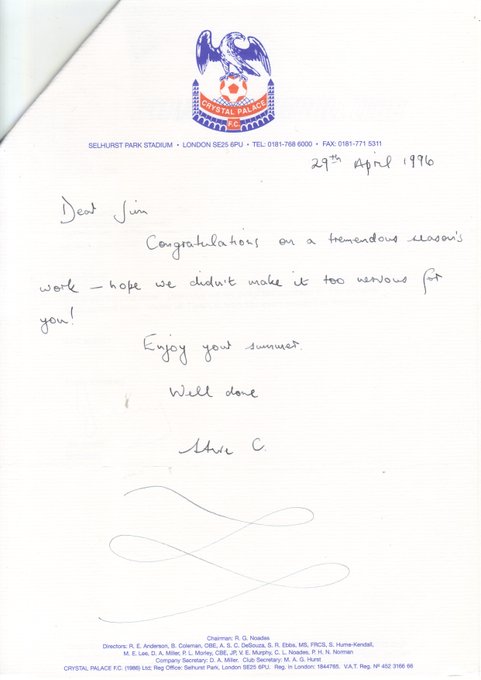 CRYSTAL PALACE
F.C.
SELHURST PARK STADIUM • LONDON SE25 6PU • TEL: 0181-768 6000 • FAX: 0181-771 5311
29th April 1996
Dear Jim
Congratulations on a tremendous season's
work – hope we didn't make it too nervous for
you!
Enjoy your summer.
Well done
Steve C.
Chairman: R. G. Noades
Directors: R. E. Anderson, B. Coleman, OBE, A. S. C. DeSouza, S. R. Ebbs, MS, FRCS, S. Hume-Kendall,
M. E. Lee, D. A. Miller, P. L. Morley, CBE, JP, V. E. Murphy, C. L. Noades, P. H. N. Norman
Company Secretary: D. A. Miller. Club Secretary: M. A. G. Hurst
CRYSTAL PALACE F.C. (1986) Ltd; Reg Office: Selhurst Park, London SE25 6PU. Reg. in London: 1844765. V.A.T. Reg. Nº 452 3166 66